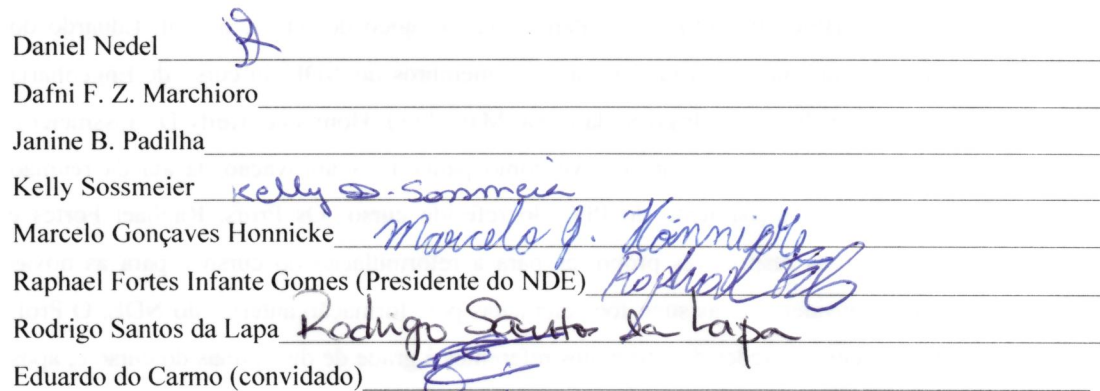 Daniel Nedel
Dafni F. Z. Marchioro
Janine B. Padilha
Kelly Sossmeier Kelly D. Sossmeier
Marcelo Gonçaves Honnicke Marcelo G. Hönnicke
Raphael Fortes Infante Gomes (Presidente do NDE) Raphael
Rodrigo Santos da Lapa Rodrigo Santos da Lapa
Eduardo do Carmo (convidado)